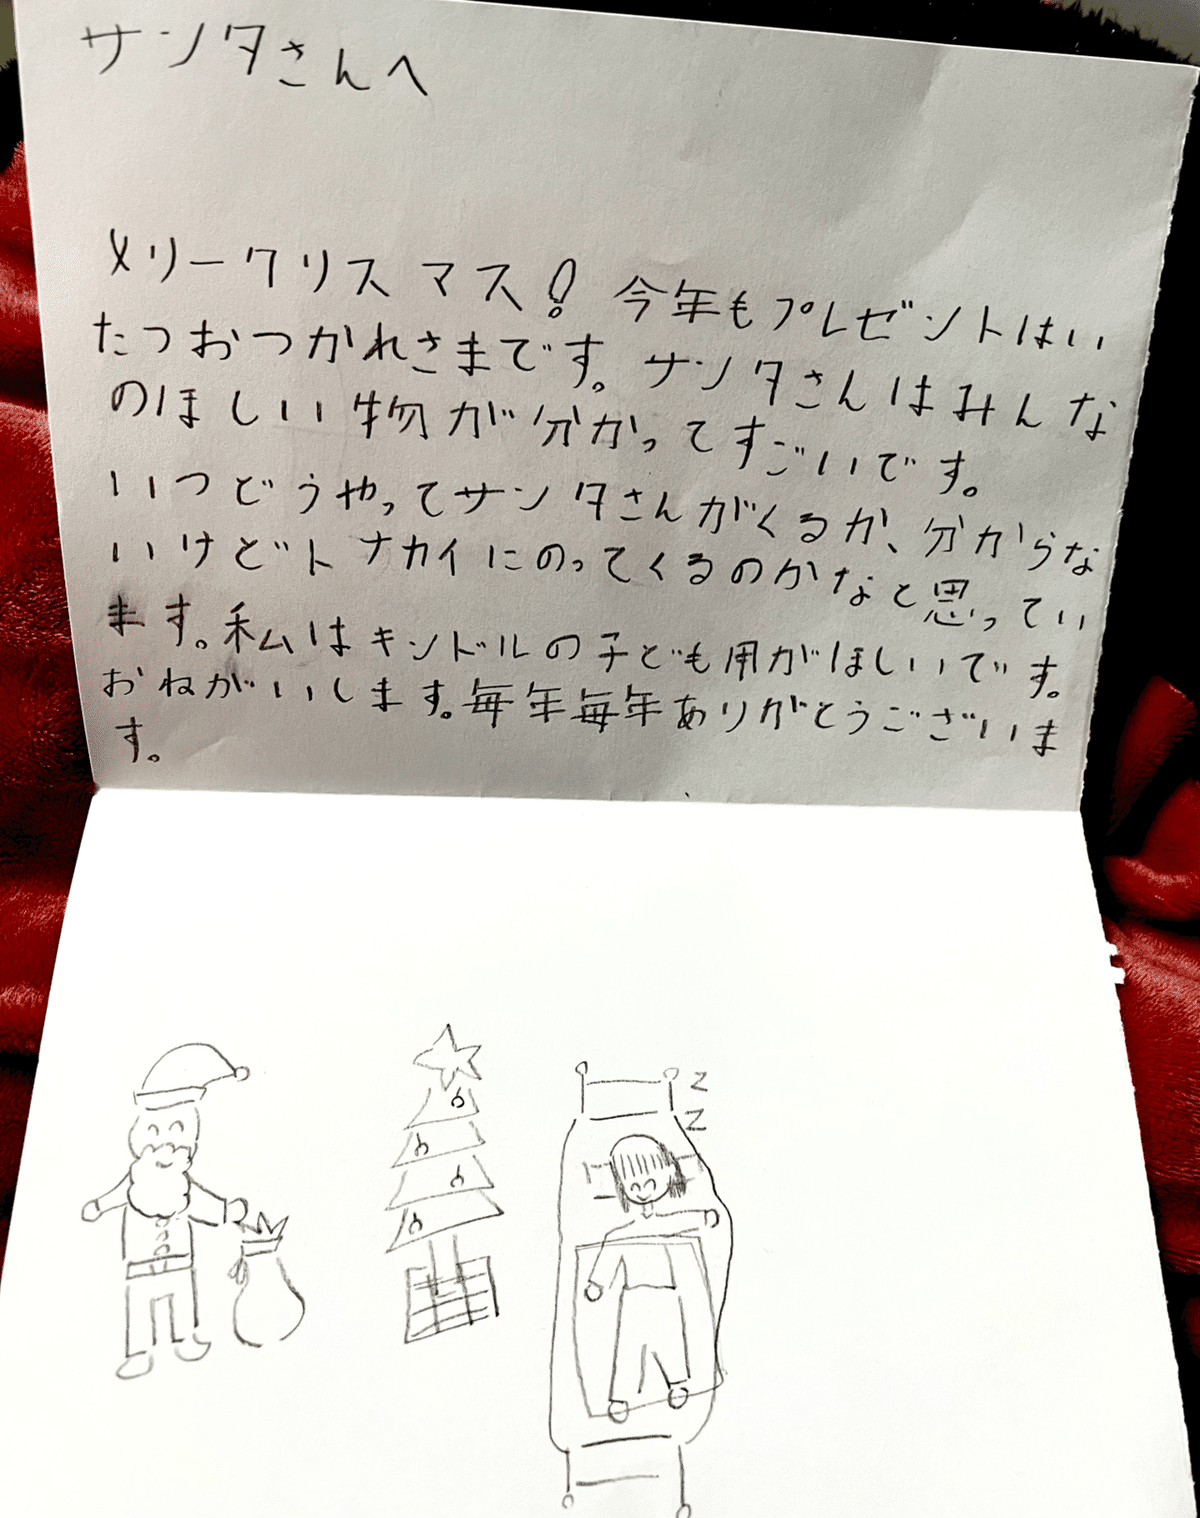 サンタさんへ
メリークリスマス! 今年もプレゼントはい
たつおつかれさまです。サンタさんはみんな
のほしい物が分かってすごいです。
いつどうやってサンタさんがくるか、分からな
いけどトナカイにのってくるのかなと思ってい
ます。私はキンドルの子ども用がほしいです。
おねがいします。毎年毎年ありがとうございま
す。
z
z